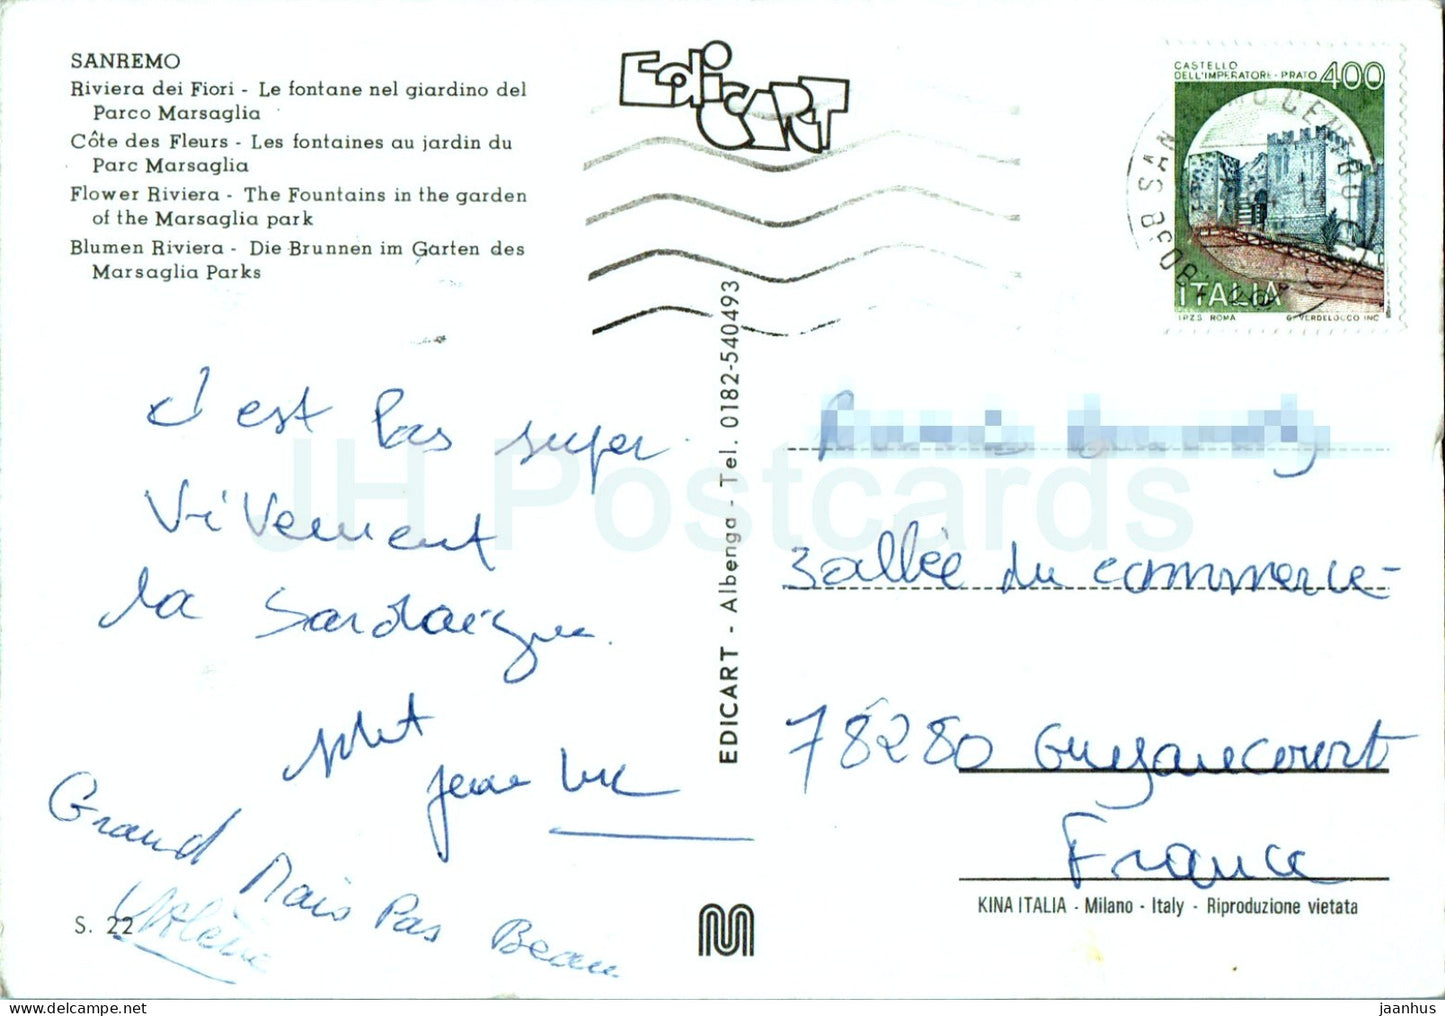 SANREMO
Riviera dei Fiori - Le fontane nel giardino del
Parco Marsaglia
Côte des Fleurs - Les fontaines au jardin du
Parc Marsaglia
Flower Riviera - The Fountains in the garden
of the Marsaglia park
Blumen Riviera - Die Brunnen im Garten des
Marsaglia Parks
EdiCART
CASTELLO
DELL'IMPERATORE - PRATO 400
ITALIA
I.P.Z.S. ROMA G. VERDELOCCO INC.
c'est pas super
Vivement
la Sardaigne.
Jean Luc
Grand Mais Pas Beau
S. 22
EDICART - Albenga - Tel. 0182-540493
3 allée du commerce
78280 Guyancourt
France
KINA ITALIA - Milano - Italy - Riproduzione vietata
JH Postcards
jaanhus